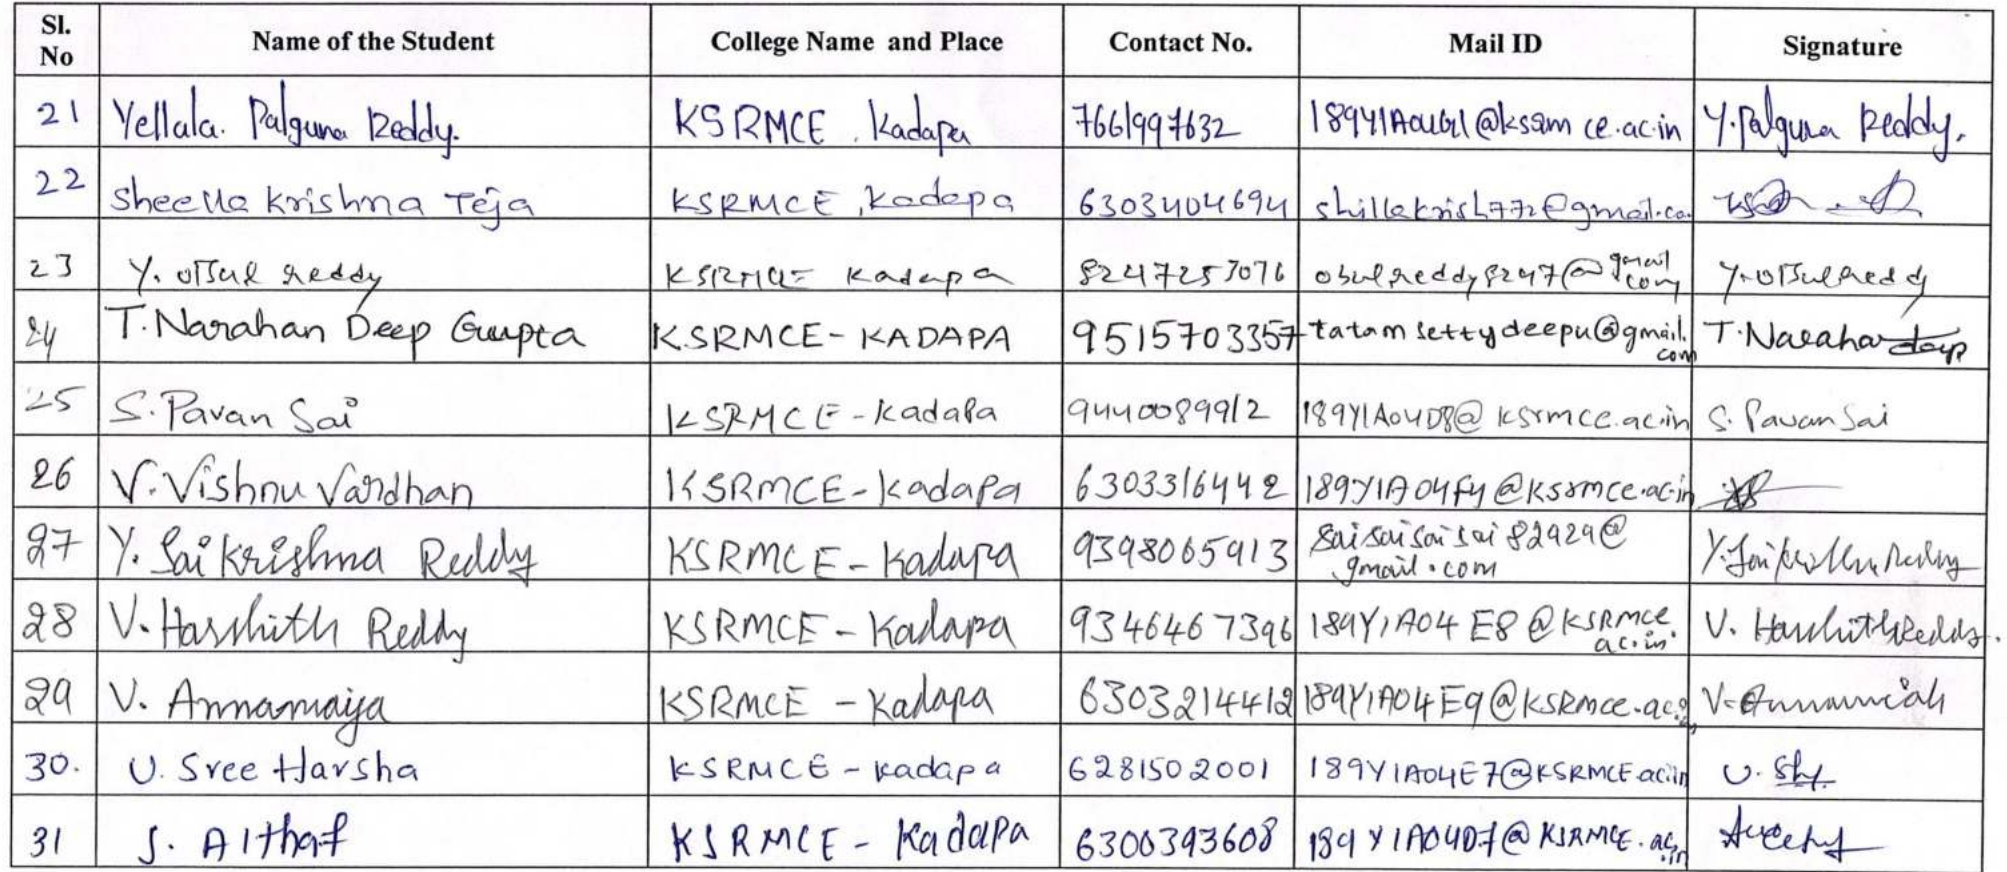 Sl. No Name of the Student College Name and Place Contact No. Mail ID Signature
21 Yellala. Palguna Reddy. KSRMCE, Kadapa 7661997632 Y. Palguna Reddy.
22 Sheella Krishna Teja KSRMCE, Kadapa 6303404694 shillakrish772@gmail.co
23 Y. obul reddy KSRMCE Kadapa 8247253076 obulreddy8247@gmail.com Y. obulreddy
24 T. Narahari Deep Gupta KSRMCE - KADAPA 9515703357 tatamsettydeepu@gmail.com T. Narahari deep
25 S. Pavan Sai KSRMCE - Kadapa 9440089912 189Y1A04D8@ksrmce.ac.in S. Pavan Sai
26 V. Vishnu Vardhan KSRMCE - Kadapa 6303316442 189Y1A04F4@ksrmce.ac.in
27 Y. Sai Krishna Reddy KSRMCE - Kadapa 9398065913 saisaisaisai82929@gmail.com Y. Saikrishna Reddy
28 V. Harshith Reddy KSRMCE - Kadapa 9346467396 189Y1A04E8@KSRMCE ac.in. V. Harshith Reddy.
29 V. Annamaiya KSRMCE - Kadapa 6303214412 189Y1A04E9@KSRMCE.ac.in V. Annamaiah
30. U. Sree Harsha KSRMCE - Kadapa 6281502001 189Y1A04E7@KSRMCE.ac.in
31 S. Althaf KSRMCE - Kadapa 6300393608 189Y1A04D7@KSRMCE.ac.in